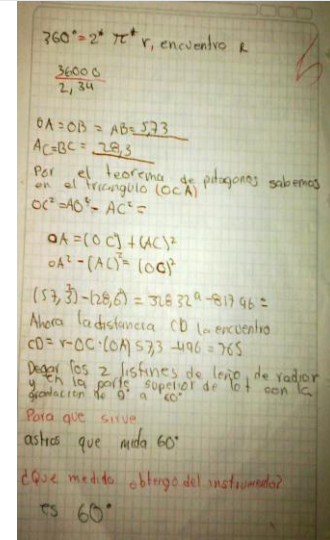 360° = 2* π* r, encuentro R
36000
2,34
OA = OB = AB = 5,73
AC = BC = 28,5
Por el teorema de pitagoras sabemos
en el triangulo (OCA)
OC² = AO² - AC² =
OA = (OC) + (AC)²
OA² - (AC)² = (OC)²
Ahora la distancia CD la encuentro
CD = r-OC · (OA) 57,3 - 496 = 765
2 listines de leño, de radior
y en la parte superior de con la
graduacion de 0° a 60°
Para que sirve
astros que mida 60°
¿Que medida obtengo del instrumento?
es 60°